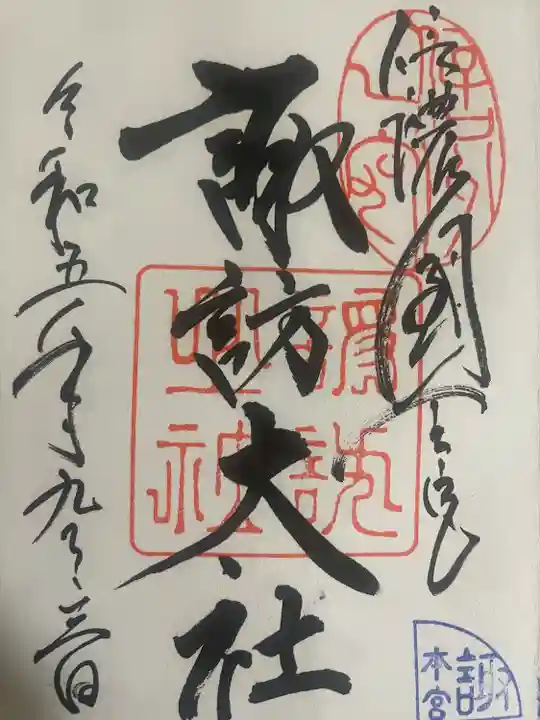 信濃國一之宮
諏訪大社
令和五年九月三日
諏
本宮